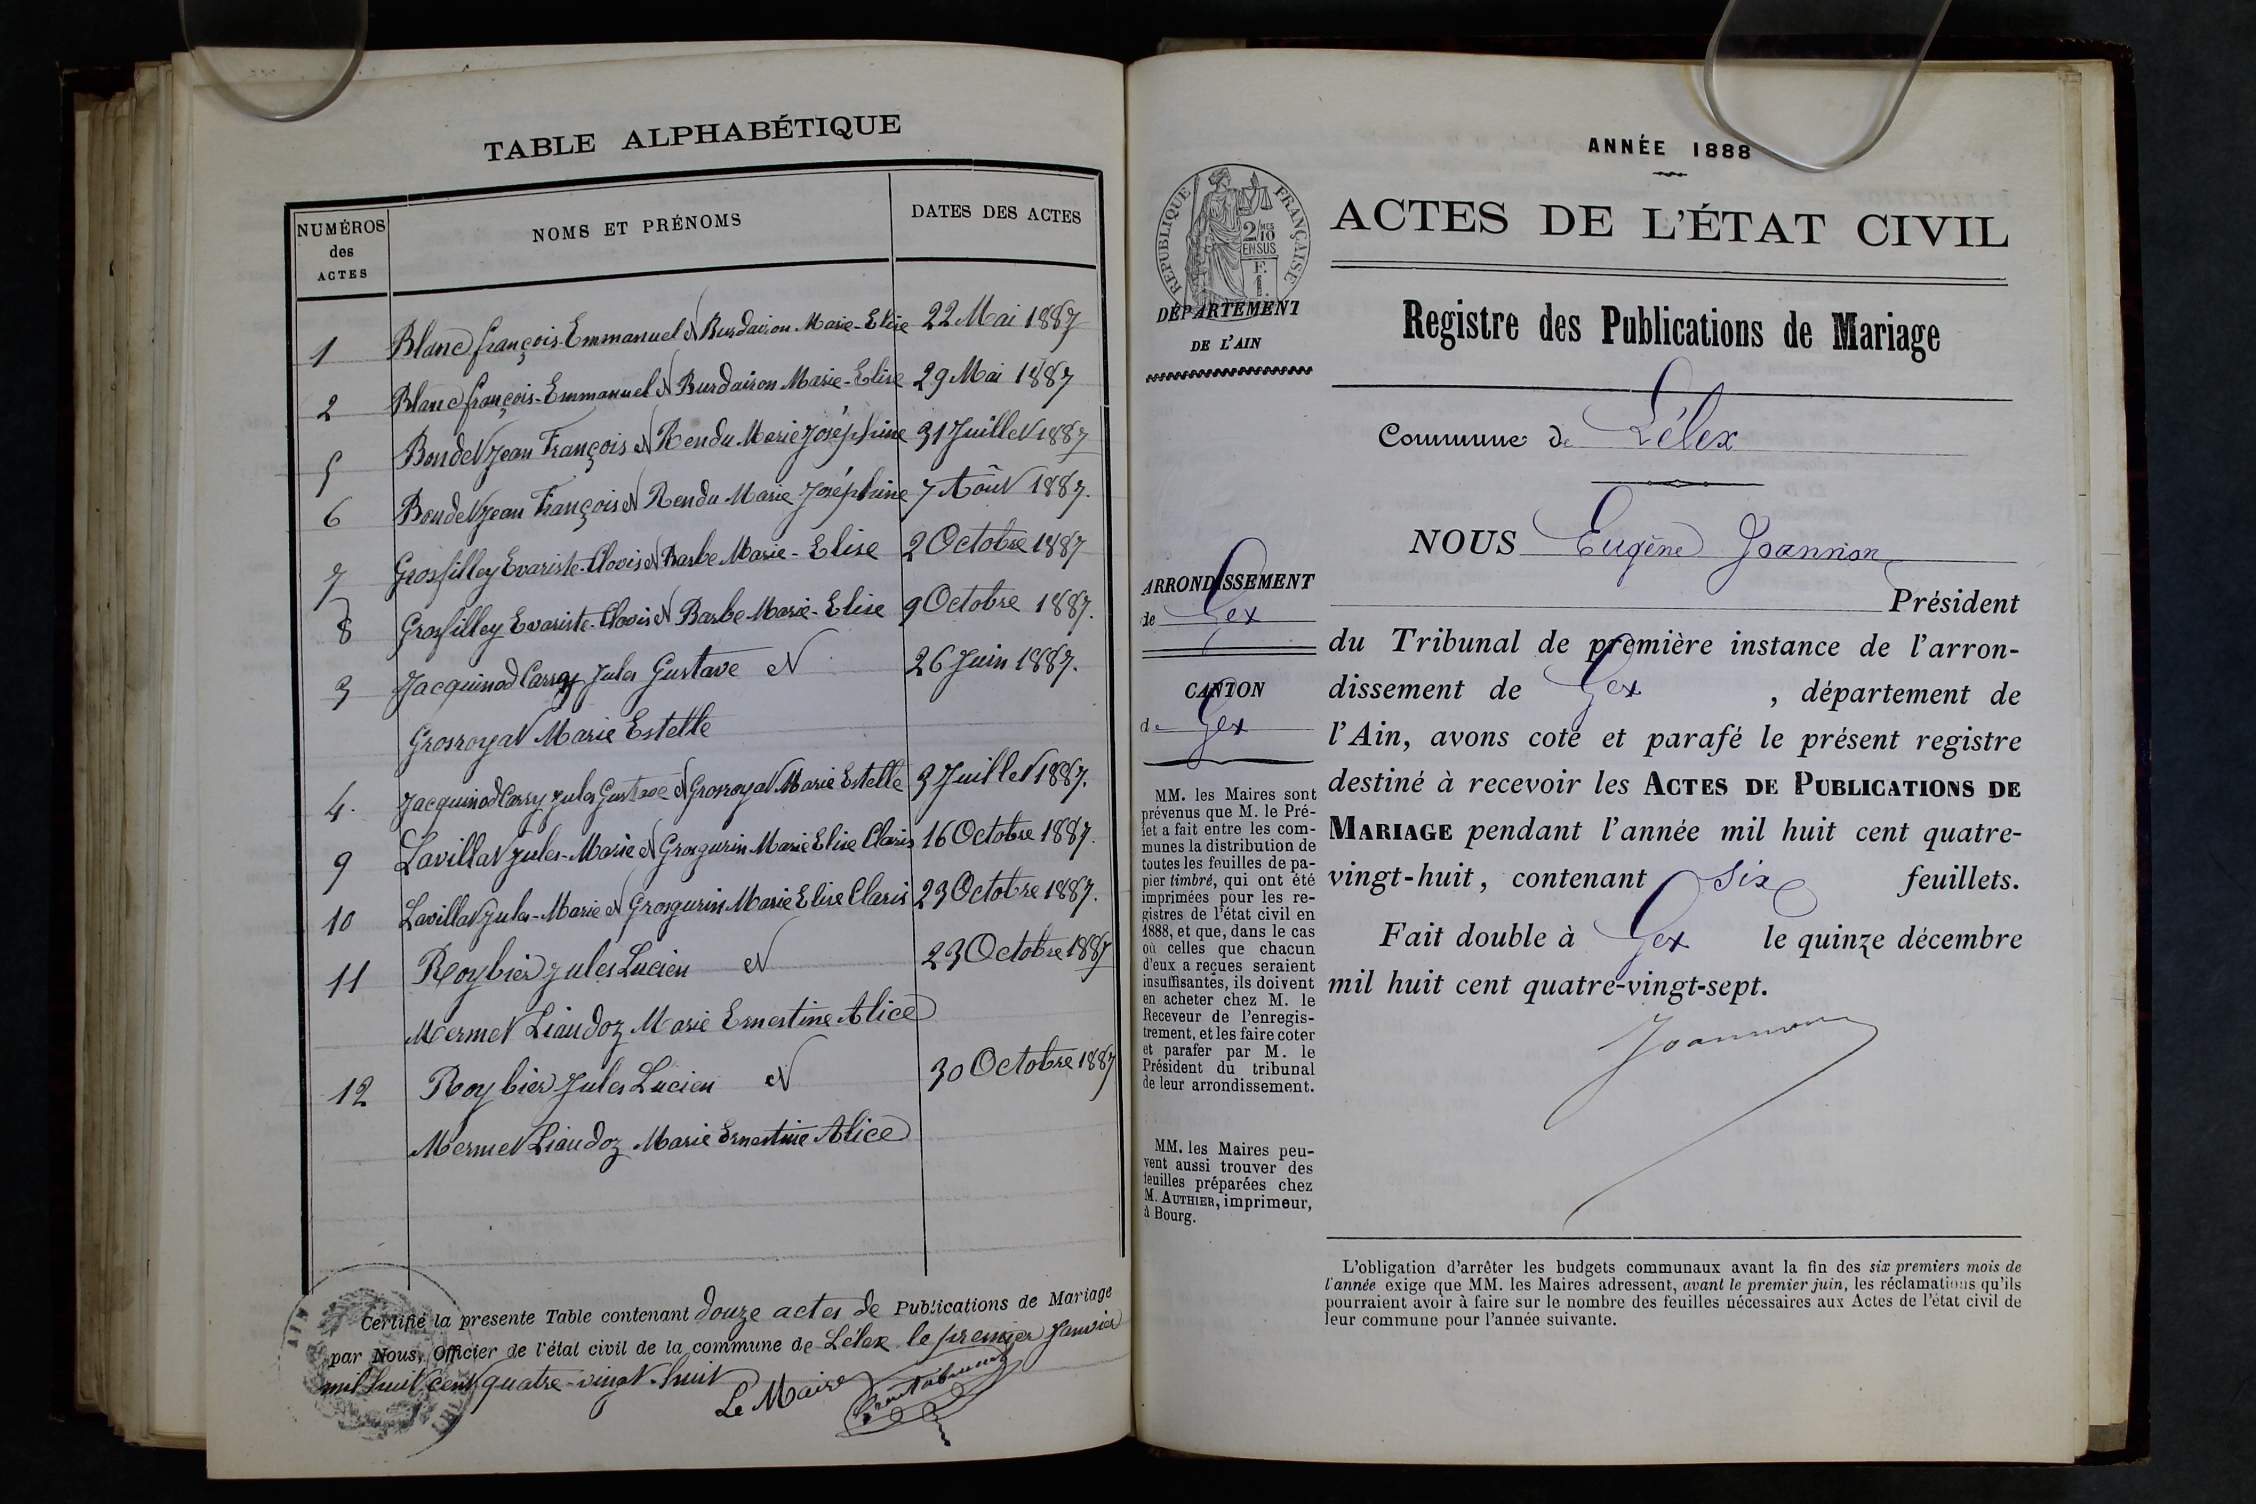 TABLE ALPHABÉTIQUE
NUMÉROS des ACTES
NOMS ET PRÉNOMS
DATES DES ACTES
1 Blanc françois-Emmanuel et Burdairon Marie-Elise 22 Mai 1887
2 Blanc françois-Emmanuel et Burdairon Marie-Elise 29 Mai 1887
5 Bondet Jean François et Rendu Marie Joséphine 31 Juillet 1887
6 Bondet Jean François et Rendu Marie Joséphine 7 Aôut 1887.
7 Grosfilley Evariste-Clovis et Barbe Marie-Elise 2 Octobre 1887
8 Grosfilley Evariste-Clovis et Barbe Marie-Elise 9 Octobre 1887.
3 Jacquinod Carry Jules Gustave et 26 Juin 1887.
Grosroyat Marie Estelle
4. Jacquinod Carry Jules Gustave et Grosroyat Marie Estelle 3 Juillet 1887.
9 Lavillat Jules-Marie et Grosgurin Marie Elise Claris 16 Octobre 1887.
10 Lavillat Jules-Marie et Grosgurin Marie Elise Claris 23 Octobre 1887.
11 Roybier Jules Lucien et 23 Octobre 1887
Mermet Liaudoz Marie Ernestine Alice
12 Roybier Jules Lucien et 30 Octobre 1887
Mermet Liaudoz Marie Ernestine Alice
Certifié la presente Table contenant douze actes de Publications de Mariage
par Nous, Officier de l'état civil de la commune de Lélex le premier Janvier
mil huit cent quatre-vingt-huit
Le Maire
AIN
RÉPUBLIQUE FRANÇAISE
2/10 MES
EN SUS
F.
1.
DÉPARTEMENT
DE L'AIN
ARRONDISSEMENT
de Gex
CANTON
de Gex
MM. les Maires sont
prévenus que M. le Pré-
fet a fait entre les com-
munes la distribution de
toutes les feuilles de pa-
pier timbré, qui ont été
imprimées pour les re-
gistres de l'état civil en
1888, et que, dans le cas
où celles que chacun
d'eux a reçues seraient
insuffisantes, ils doivent
en acheter chez M. le
Receveur de l'enregis-
trement, et les faire coter
et parafer par M. le
Président du tribunal
de leur arrondissement.
MM. les Maires peu-
vent aussi trouver des
feuilles préparées chez
M. AUTHIER, imprimeur,
à Bourg.
ANNÉE 1888
ACTES DE L'ÉTAT CIVIL
Registre des Publications de Mariage
Commune de Lélex
NOUS Eugène Joannion
Président
du Tribunal de première instance de l'arron-
dissement de Gex , département de
l'Ain, avons coté et parafé le présent registre
destiné à recevoir les ACTES DE PUBLICATIONS DE
MARIAGE pendant l'année mil huit cent quatre-
vingt-huit, contenant six feuillets.
Fait double à Gex le quinze décembre
mil huit cent quatre-vingt-sept.
L'obligation d'arrêter les budgets communaux avant la fin des six premiers mois de
l'année exige que MM. les Maires adressent, avant le premier juin, les réclamations qu'ils
pourraient avoir à faire sur le nombre des feuilles nécessaires aux Actes de l'état civil de
leur commune pour l'année suivante.